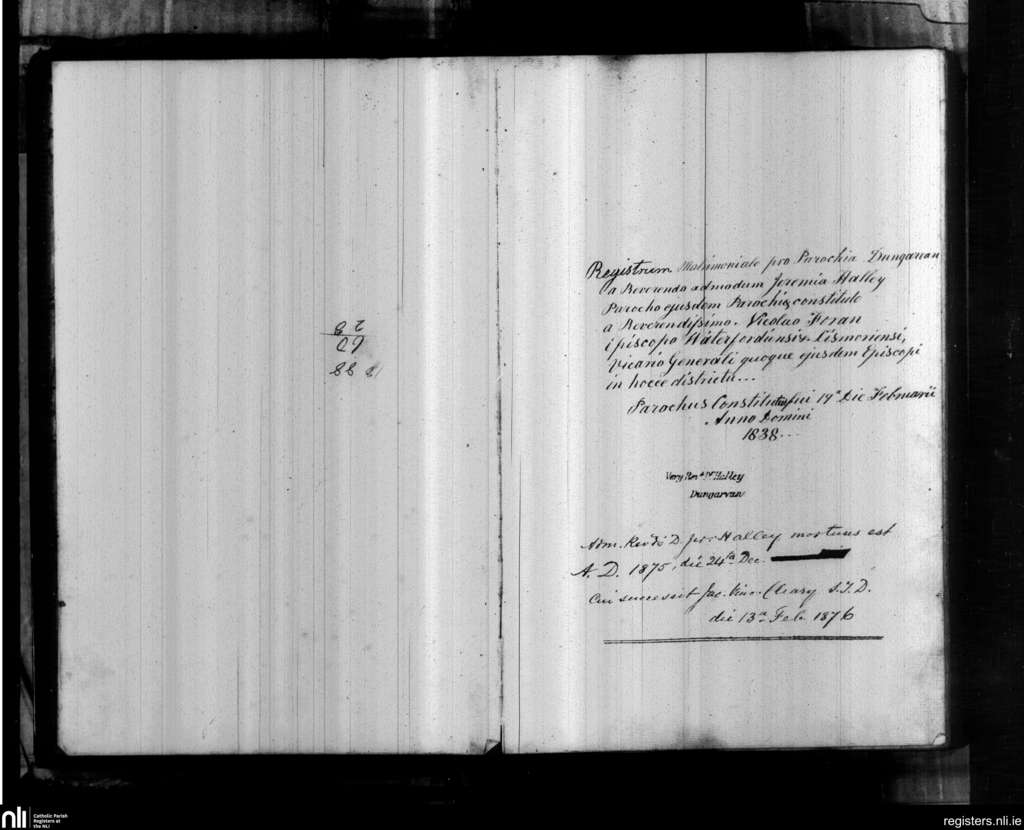 Registrum Matrimoniale pro Parochia Dungarvan
a Reverendo admodum Jeremia Halley
Parocho ejusdem Parochiæ constituto
a Reverendissimo. Nicolao Foran
Episcopo Waterfordiensi & Lismoriensi,
Vicario Generali quoque ejusdem Episcopi
in hocce districtu...
Parochus Constitutus fui 19º Die Februarii
Anno Domini
1838...
Very Revd Dr Halley
Dungarvan
Adm. Revds D. Jer: Halley mortuus est
A. D. 1875, die 24ta Dec.
Cui successit Jac. Vinc. Cleary S.T.D.
die 13a Feb. 1876
nli
Catholic Parish
Registers at
the NLI
registers.nli.ie